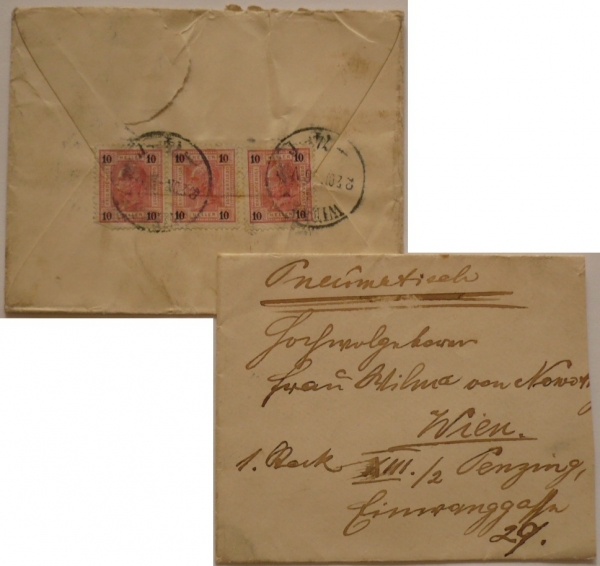 10 10 10 10 10 10
10 10 10 10 10 10
WIEN
Pneumatisch
Hochwolgeboren
Frau Wilma von
Wien.
1. Stock XIII./2 Penzing,
Einwanggasse
29.